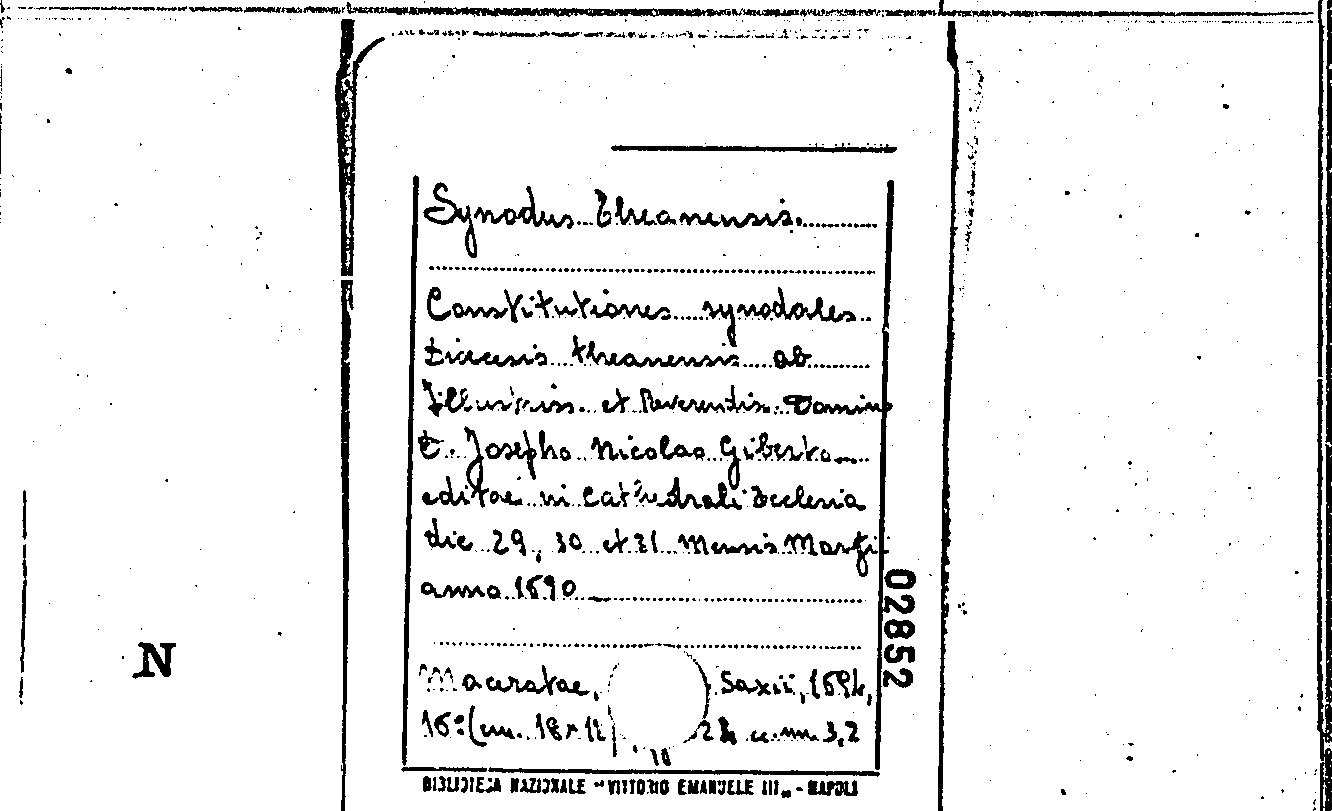 Synodus Theanensis.
Constitutiones synodales
Diœcesis theanensis ab
Illustriss. et Reverendis. Domino
D. Josepho Nicolao Giberto
editae in Cathedrali Ecclesia
die 29, 30 et 31 Mensis Martii
anno 1690
N
02852
Maceratae, Saxii, 1694,
16° (cm. 18 x 12) cc. nn. 3,2
10
BIBLIOTECA NAZIONALE "VITTORIO EMANUELE III" - NAPOLI